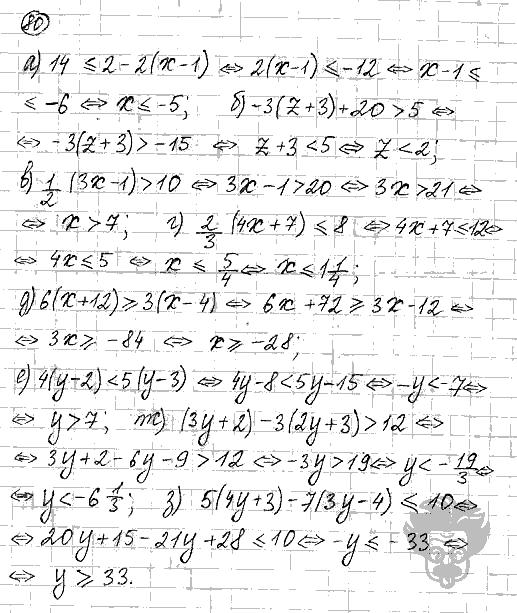 80
а) 14 ≤ 2 - 2(x-1) ⇔ 2(x-1) ≤ -12 ⇔ x-1 ≤
≤ -6 ⇔ x ≤ -5; б) -3(z+3)+20 > 5 ⇔
⇔ -3(z+3) > -15 ⇔ z+3 < 5 ⇔ z < 2;
в) 1/2 (3x-1) > 10 ⇔ 3x-1 > 20 ⇔ 3x > 21 ⇔
⇔ x > 7; г) 2/3 (4x+7) ≤ 8 ⇔ 4x+7 ≤ 12 ⇔
⇔ 4x ≤ 5 ⇔ x ≤ 5/4 ⇔ x ≤ 1 1/4;
д) 6(x+12) ≥ 3(x-4) ⇔ 6x+72 ≥ 3x-12 ⇔
⇔ 3x ≥ -84 ⇔ x ≥ -28;
е) 4(y-2) < 5(y-3) ⇔ 4y-8 < 5y-15 ⇔ -y < -7 ⇔
⇔ y > 7; ж) (3y+2) - 3(2y+3) > 12 ⇔
⇔ 3y+2-6y-9 > 12 ⇔ -3y > 19 ⇔ y < -19/3 ⇔
⇔ y < -6 1/3; з) 5(4y+3) - 7(3y-4) ≤ 10 ⇔
⇔ 20y+15-21y+28 ≤ 10 ⇔ -y ≤ -33 ⇔
⇔ y ≥ 33.